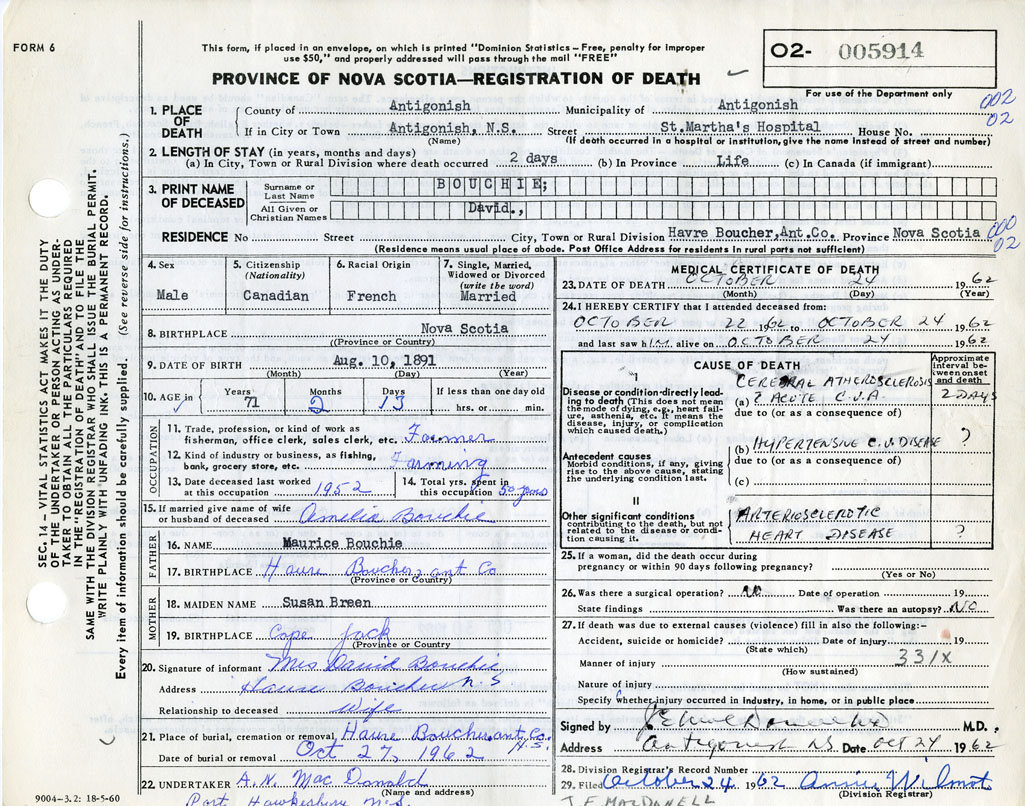 FORM 6
This form, if placed in an envelope, on which is printed "Dominion Statistics – Free, penalty for improper
use $50," and properly addressed will pass through the mail "FREE"
PROVINCE OF NOVA SCOTIA—REGISTRATION OF DEATH
02- 005914
For use of the Department only
002
02
1. PLACE OF DEATH
County of Antigonish Municipality of Antigonish
If in City or Town Antigonish, N.S. Street St.Martha's Hospital House No.
(Name) (If death occurred in a hospital or institution, give the name instead of street and number)
2. LENGTH OF STAY (in years, months and days)
(a) In City, Town or Rural Division where death occurred 2 days (b) In Province Life (c) In Canada (if immigrant)
3. PRINT NAME OF DECEASED
Surname or Last Name BOUCHIE;
All Given or Christian Names David.,
RESIDENCE No Street City, Town or Rural Division Havre Boucher,Ant.Co. Province Nova Scotia
(Residence means usual place of abode. Post Office Address for residents in rural parts not sufficient)
000
02
4. Sex
Male
5. Citizenship
(Nationality)
Canadian
6. Racial Origin
French
7. Single, Married, Widowed or Divorced
(write the word)
Married
8. BIRTHPLACE Nova Scotia
((Province or Country)
9. DATE OF BIRTH Aug. 10, 1891
(Month) (Day) (Year)
10. AGE in
Years Months Days If less than one day old
71 2 13 hrs. or min.
OCCUPATION
11. Trade, profession, or kind of work as
fisherman, office clerk, sales clerk, etc. Farmer
12. Kind of industry or business, as fishing,
bank, grocery store, etc. Farming
13. Date deceased last worked
at this occupation 1952
14. Total yrs. spent in
this occupation 50 years
15. If married give name of wife
or husband of deceased Amelia Bouchie
FATHER
16. NAME Maurice Bouchie
17. BIRTHPLACE Havre Boucher ant Co
(Province or Country)
MOTHER
18. MAIDEN NAME Susan Breen
19. BIRTHPLACE Cape Jack
(Province or Country)
20. Signature of informant Mrs David Bouchie
Address Havre Boucher N.S
Relationship to deceased Wife
21. Place of burial, cremation or removal Havre Boucher ant. Co. N.S.
Date of burial or removal Oct 27, 1962
22. UNDERTAKER A.N. Mac Donald
(Name and address)
Port Hawkesbury N.S.
9004-3.2: 18-5-60
MEDICAL CERTIFICATE OF DEATH
23. DATE OF DEATH OCTOBER 24 1962
(Month) (Day) (Year)
24. I HEREBY CERTIFY that I attended deceased from:
OCTOBER 22 1962 to OCTOBER 24 1962
and last saw hIM alive on OCTOBER 24 1962
CAUSE OF DEATH
Approximate interval between onset and death
I
Disease or condition directly leading to death (This does not mean the mode of dying, e.g., heart failure, asthenia, etc. It means the disease, injury, or complication which caused death.)
CEREBRAL ATHEROSCLEROSIS
(a) ? ACUTE C.V.A. 2 DAYS
due to (or as a consequence of)
Antecedent causes
Morbid conditions, if any, giving rise to the above cause, stating the underlying condition last.
(b) HYPERTENSIVE C.V. DISEASE ?
due to (or as a consequence of)
(c)
II
Other significant conditions
contributing to the death, but not related to the disease or condition causing it.
ARTERIOSCLEROTIC
HEART DISEASE ?
25. If a woman, did the death occur during
pregnancy or within 90 days following pregnancy?
(Yes or No)
26. Was there a surgical operation? NO Date of operation 19
State findings Was there an autopsy? NO
27. If death was due to external causes (violence) fill in also the following:-
Accident, suicide or homicide? Date of injury 19
(State which)
331X
Manner of injury
(How sustained)
Nature of injury
Specify whether injury occurred in industry, in home, or in public place
Signed by M.D.
Address Antigonish N.S. Date OCT 24 1962
28. Division Registrar's Record Number
29. Filed October 24 1962 Annie Wilmot
(Division Registrar)
J.F. MACDONELL
SEC. 14 – VITAL STATISTICS ACT MAKES IT THE DUTY
OF THE UNDERTAKER OR PERSON ACTING AS UNDERTAKER
TO OBTAIN ALL THE PARTICULARS REQUIRED
IN THE "REGISTRATION OF DEATH" AND TO FILE THE
SAME WITH THE DIVISION REGISTRAR WHO SHALL ISSUE THE BURIAL PERMIT.
WRITE PLAINLY WITH UNFADING INK. THIS IS A PERMANENT RECORD.
Every item of information should be carefully supplied. (See reverse side for instructions.)